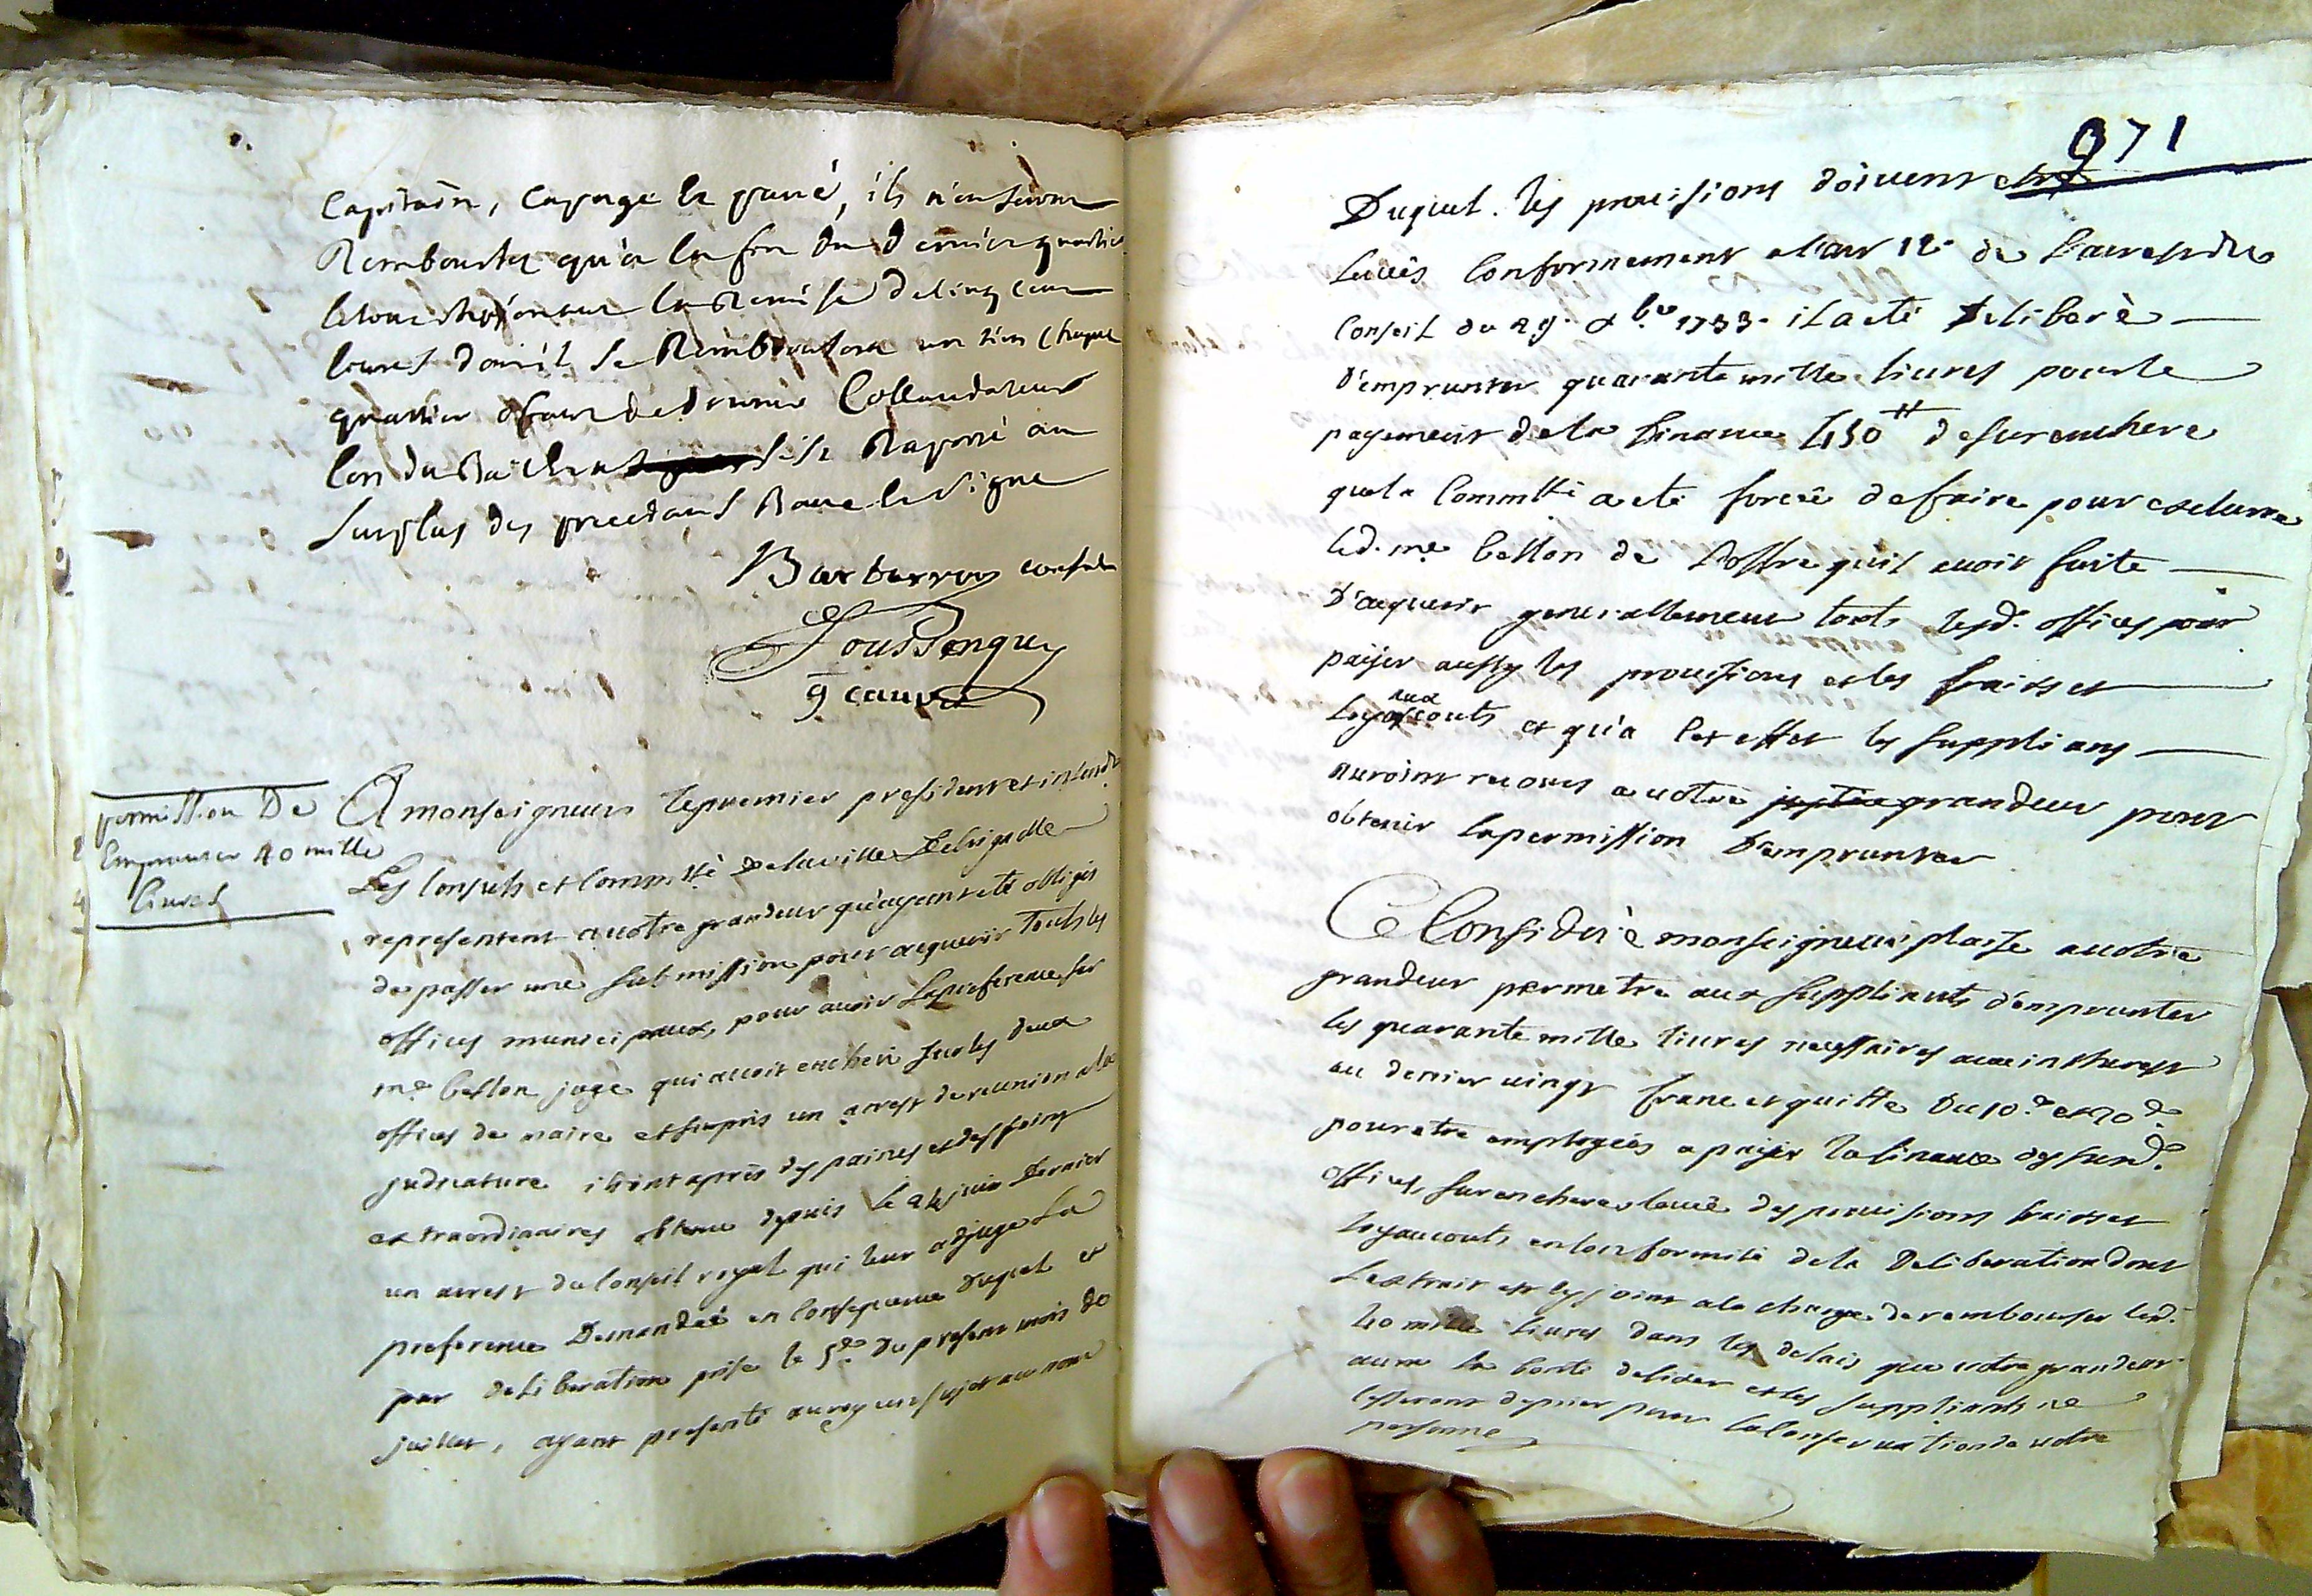 Capitation, Capage et pavé, ils n'en seront
Remboursés qu'a la fin du dernier quartier
la Remise de cinq cens
livres dont il se Remboursera un tiers chaque
quartier
lors du Bail Raporté au
surplus des precedans signe
Barbarroux consul
Toussenquy
g cauvet
permission De
Emprunter 40 mille
livres
A monseigneur le premier president et intend.t
Les Consuls et Commtté de la ville de
representent a votre grandeur qu'ayant eté obligés
de passer une submission pour acquerir touts les
offices municipaux, pour avoir la preference sur
me bellon juge qui avoit encheri sur les deux
offices de maire et surpris un arrest de reunion a la
judicature ils ont aprés des paines et des soins
extraordinaires obtenu depuis le 24 juin dernier
un arrest du Conseil royal qui leur adjuge La
preference Demandée en Consequence Duquel et
par deliberation prise le 5.e du present mois de
juillet, ayant presenté au roy un sujet au nom
371
Duquel les provisions doivent etre
Levées Conformement a l'art 12. de l'arrest du
Conseil du 29. xbre 1733. il a eté deliberé
d'emprunter quarante mille livres pour le
payement de la finance 450# de surenchere
que la Committé a eté forcée de faire pour exclurre
led. me bellon de l'offre qu'il avoit faite
d'acquerir generallement touts lesd. offices pour
paijer aussy les provisions et les fraids et
loyaux couts et qu'a cet effet les supplians
auroint recours a votre justice grandeur pour
obtenir la permission D'emprunter
Ce Consideré monseigneur plaise a votre
grandeur permetre aux suppliants d'emprunter
les quarante mille livres necessaires aux intherest
au denier vingt franc et quitte Du 10.e et 20.e
pour etre employées a paijer la finance des susd.
offices, surenchere, levée des provisions fraids et
loyaux couts en Conformité de la Deliberation dont
L'extrait est cy joint a la charge de rembourser lesd.
40 mille livres dans les delais que votre grandeur
aura la bonté de fixer et les suppliants ne
cesseront de prier pour la Conservation de votre
personne